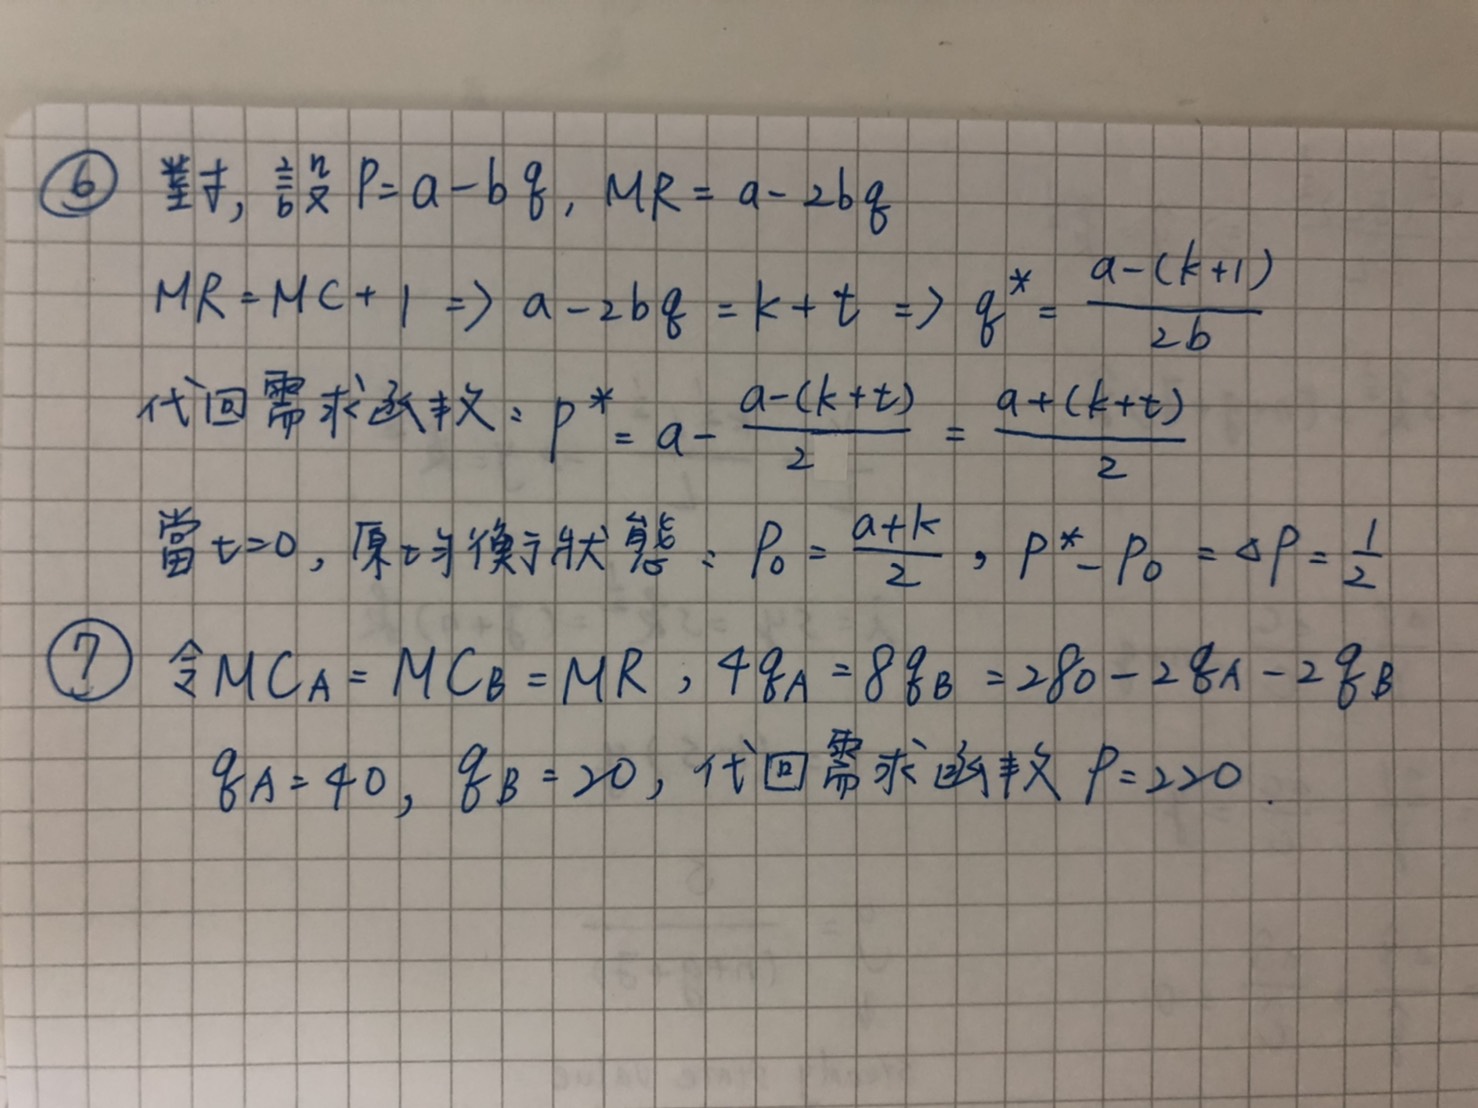 ⑥ 對, 設 P=a-bq, MR=a-2bq
MR=MC+1 => a-2bq=k+t => q*=\frac{a-(k+1)}{2b}
代回需求函数: p*=a-\frac{a-(k+t)}{2}=\frac{a+(k+t)}{2}
當t=0, 原均衡狀態: P₀=\frac{a+k}{2}, P*-P₀=△P=\frac{1}{2}
⑦ 令MCA=MCB=MR, 4qA=8qB=280-2qA-2qB
qA=40, qB=20, 代回需求函数 P=220.